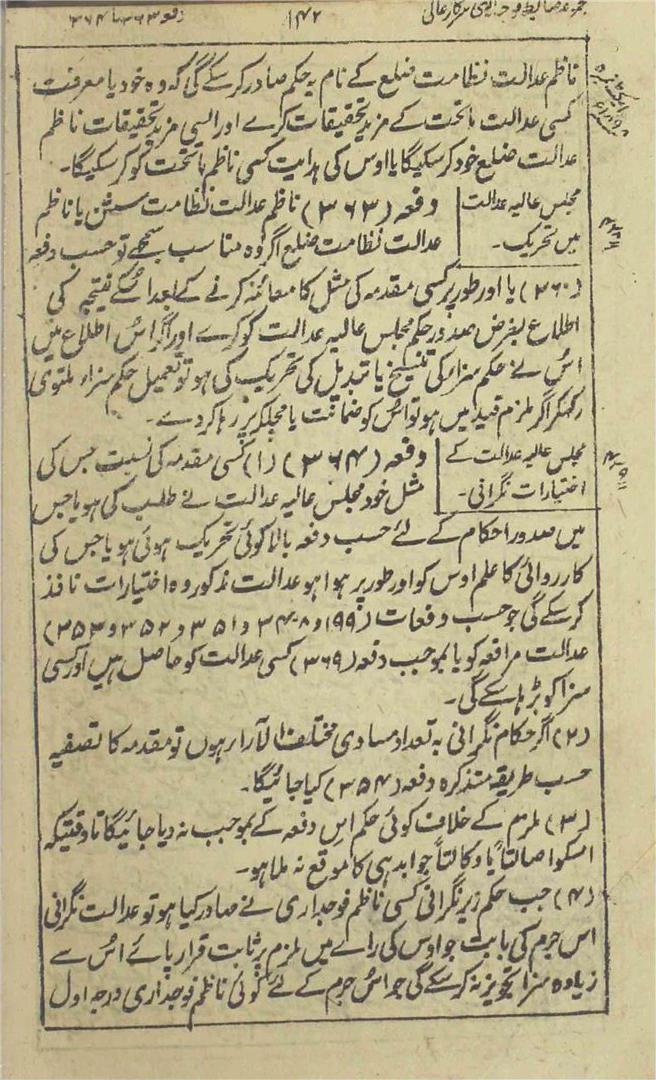 دفعہ ۳۶۳ تا ۳۶۴
۱۴۲
مجموعہ ضابطہ فوجداری سرکار عالی
ناظم عدالت نظامت ضلع کے نام یہ حکم صادر کرسکے گی کہ وہ خود یا معرفت
کسی عدالت ماتحت کے مزید تحقیقات کرے اور ایسی مزید تحقیقات ناظم
عدالت ضلع خود کرسکیگا یا اوس کی ہدایت کسی ناظم ماتحت کو کرسکیگا۔
مجلس عالیہ عدالت
میں تحریک۔
دفعہ (۳۶۳) ناظم عدالت نظامت سشن یا ناظم
عدالت نظامت ضلع اگر وہ مناسب سمجھے تو حسب دفعہ
(۳۶۰) یا اور طور پر کسی مقدمہ کی مثل کا معائنہ کرنے کے بعد اسکے نتیجہ کی
اطلاع بغرض صدور حکم مجلس عالیہ عدالت کو کرے اور اگر اس اطلاع میں
اُس نے حکم سزاء کی تنسیخ یا تبدیل کی تحریک کی ہو تو تعمیل حکم سزاء ملتوی
رکھکر اگر ملزم قید میں ہو تو اُس کو ضمانت یا مچلکہ پر رہا کردے۔
مجلس عالیہ عدالت کے
اختیارات نگرانی۔
دفعہ (۳۶۴) (۱) کسی مقدمہ کی نسبت جس کی
مثل خود مجلس عالیہ عدالت نے طلب کی ہو یا جس
میں صدور احکام کے لئے حسب دفعہ بالا کوئی تحریک ہوئی ہو یا جس کی
کارروائی کا علم اوس کو اور طور پر ہوا ہو عدالت مذکور وہ اختیارات نافذ
کرسکے گی جو حسب دفعات (۱۹۹ و ۳۴۸ و ۳۵۱ و ۳۵۲ و ۳۵۳)
عدالت مرافعہ کو یا بموجب دفعہ (۳۶۹) کسی عدالت کو حاصل ہیں اور کسی
سزا کو بڑہا سکے گی۔
(۲) اگر حکام نگرانی بہ تعداد مساوی مختلف الآراء ہوں تو مقدمہ کا تصفیہ
حسب طریقہ متذکرہ دفعہ (۳۵۴) کیا جائیگا۔
(۳) ملزم کے خلاف کوئی حکم اس دفعہ کے بموجب نہ دیا جائیگا تاوقتیکہ
اسکو اصالتاً یا وکالتاً جوابدہی کا موقع نہ ملا ہو۔
(۴) جب حکم زیر نگرانی کسی ناظم فوجداری نے صادر کیا ہو تو عدالت نگرانی
اس جرم کی بابت جو اوس کی رائے میں ملزم پر ثابت قرار پائے اُس سے
زیادہ سزا تجویز نہ کرسکے گی جو اُس جرم کے لئے کوئی ناظم فوجداری درجہ اول